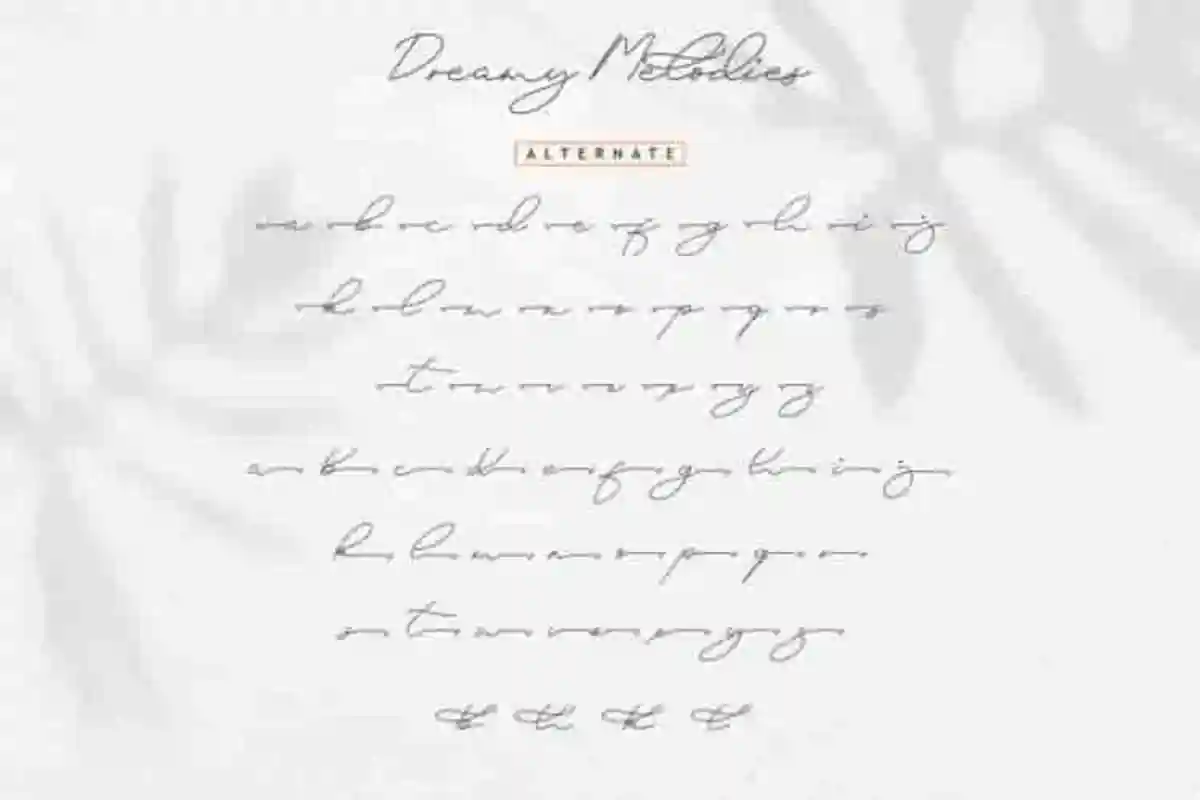 Dreamy Melodies
ALTERNATE
a b c d e f g h i j
k l m n o p q r s
t u v w x y z
a b c d e f g h i j
k l m n o p q r
s t u v w x y z